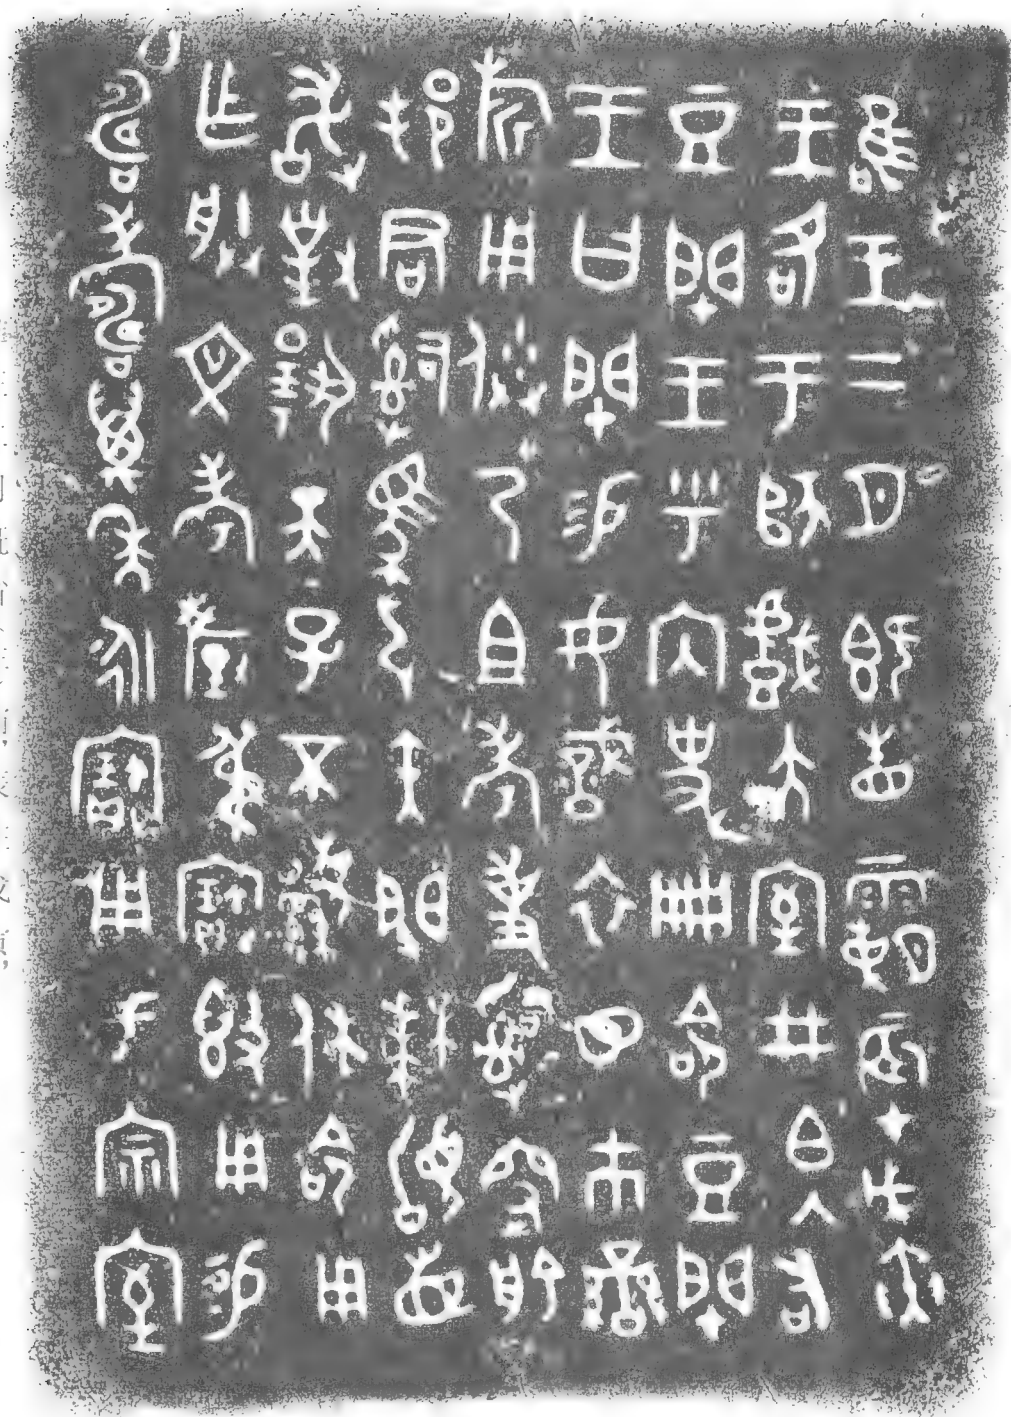 唯王二月既眚霸辰才戊寅
王各于師戲大室井白入右
豆閉王乎內史冊命豆閉
王曰閉易女戠衣⊗巿䜌
旂用𠊱乃且考事𤔲窑艅
邦君𤔲馬弓矢閉拜𩒨首
敢對揚天子不顯休命用
乍朕文考釐弔寶𣪘用易
疇壽萬年永寶用于宗室